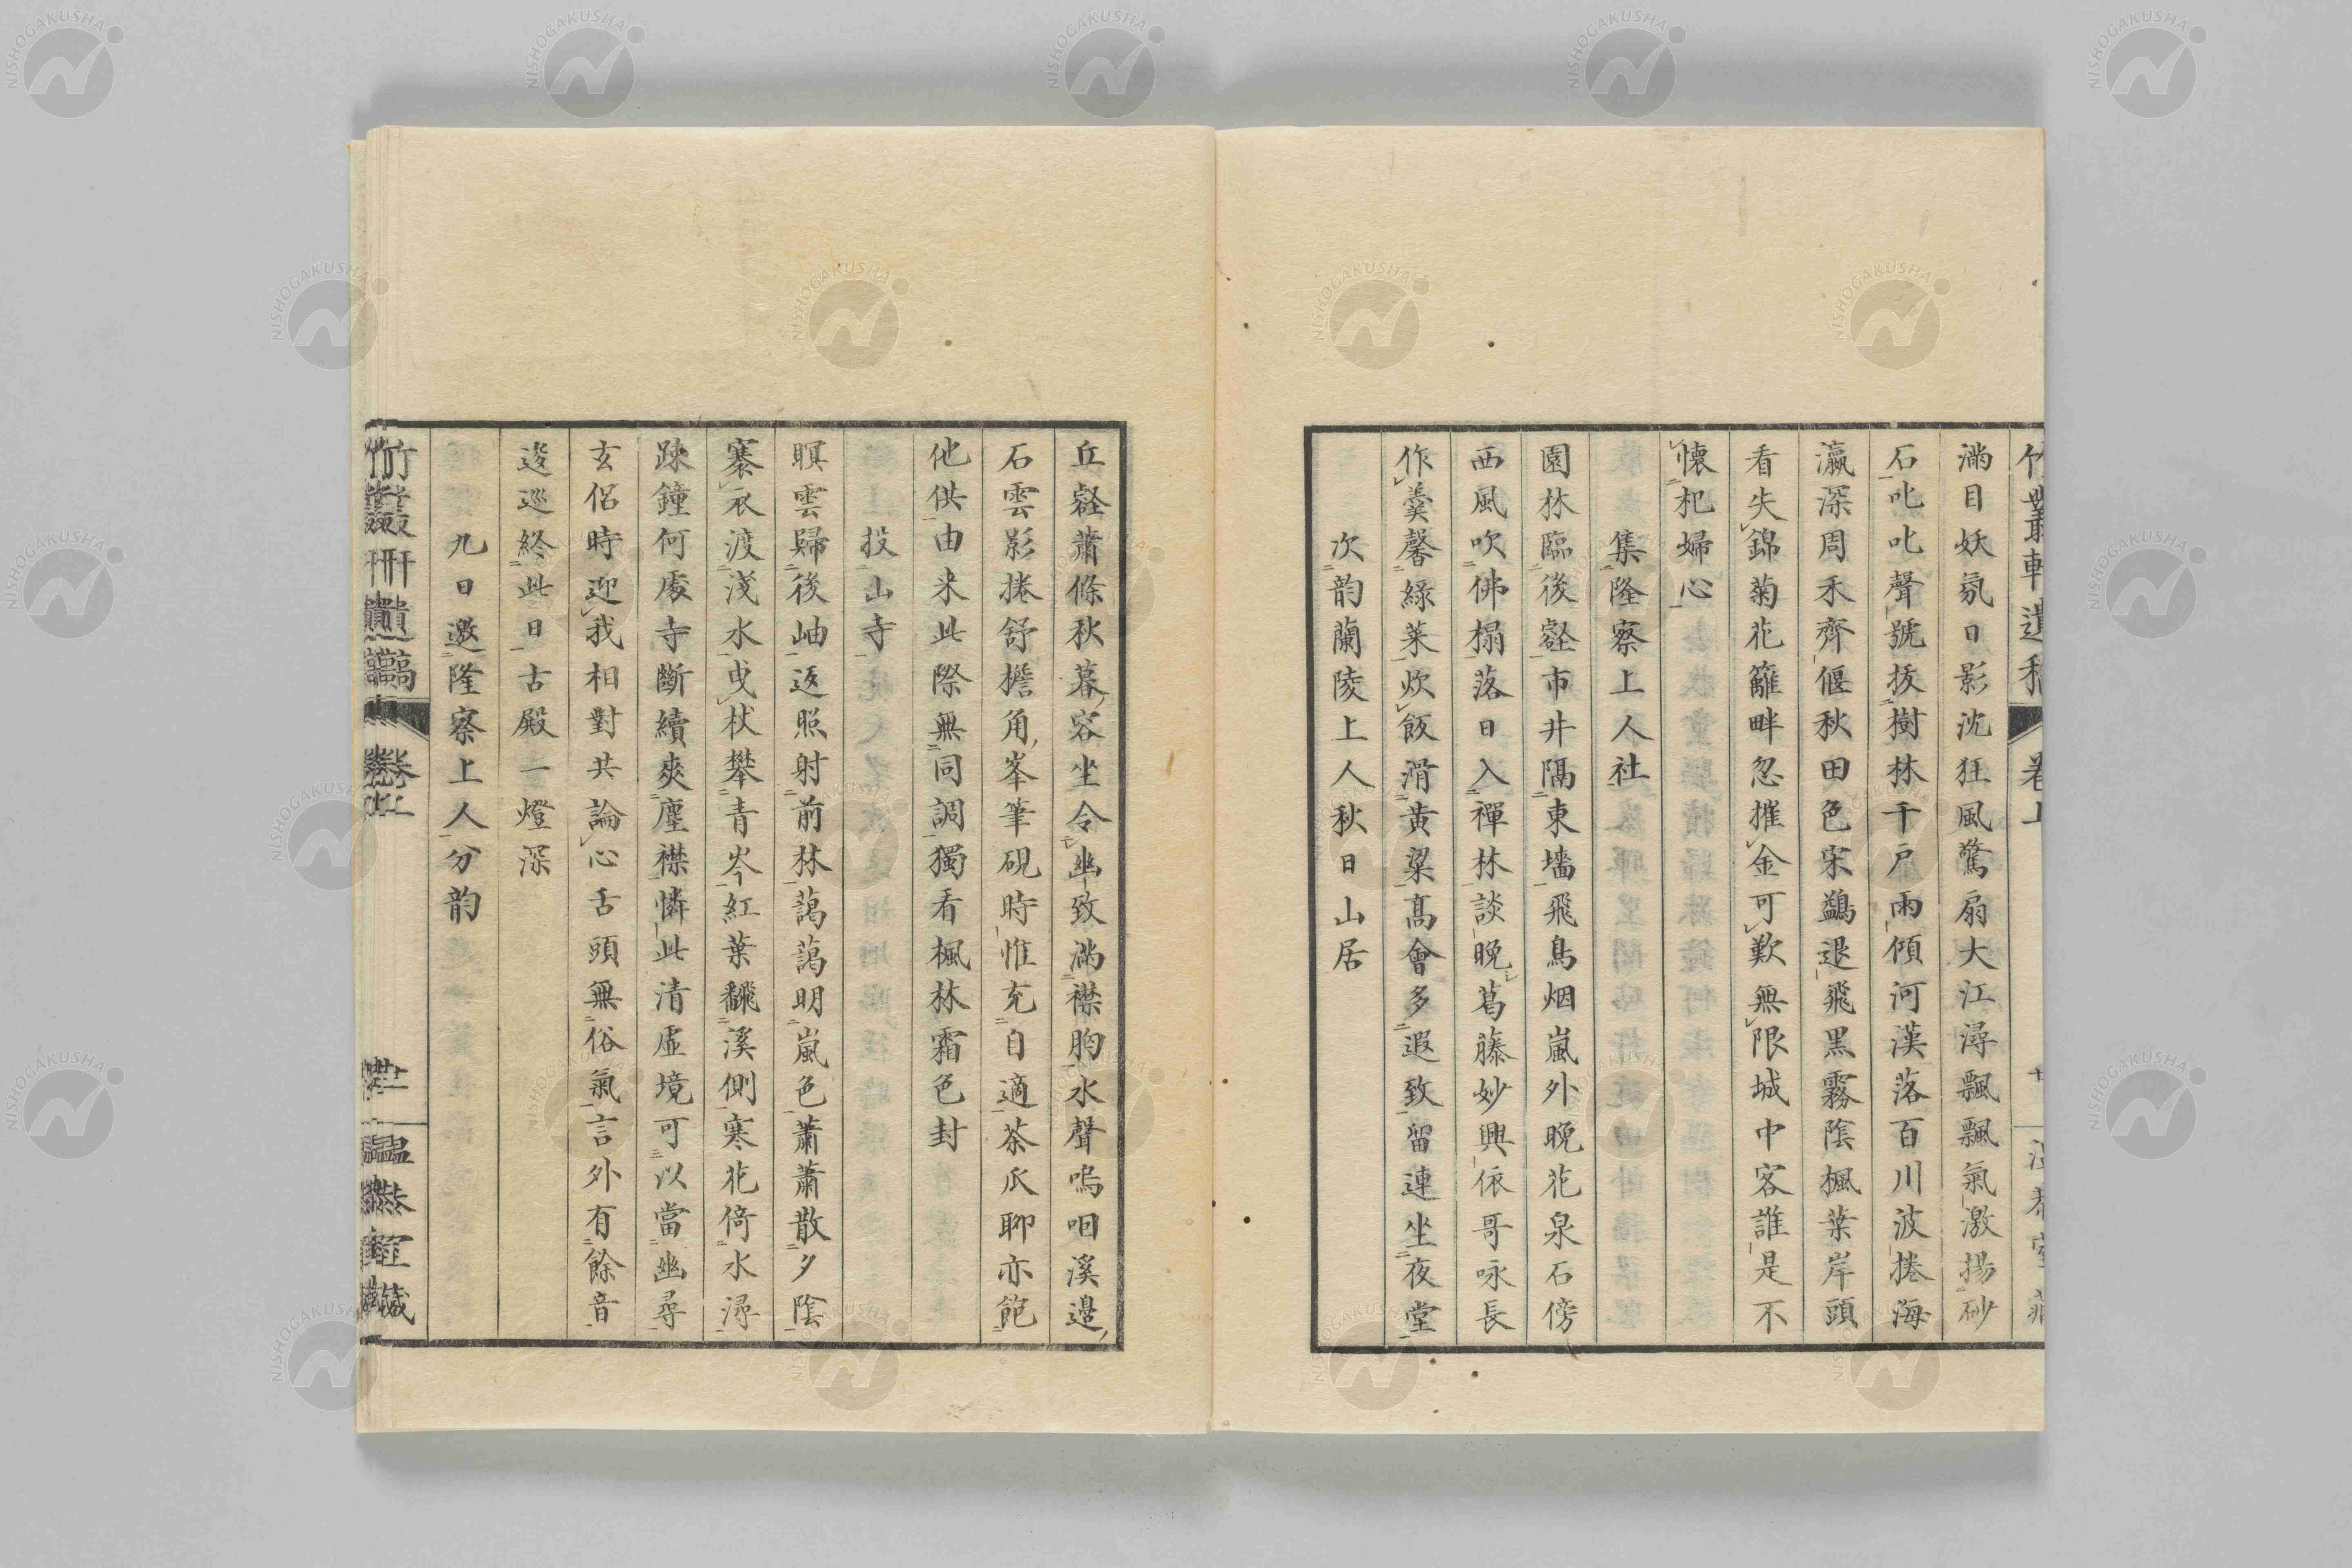 竹叢軒遺稿 卷上
滿目妖氛日影沈狂風驚扇大江潯飄飄氣激揚砂
石叱叱聲號拔樹林千戶雨傾河漢落百川波捲海
瀛深周禾齊偃秋田色宋鷁退飛黑霧陰楓葉岸頭
看失錦菊花籬畔忽摧金可歎無限城中客誰是不
懷杞婦心
集隆察上人社
園林臨後壑市井隔東墻飛鳥烟嵐外晚花泉石傍
西風吹佛榻落日入禪林談晚葛藤妙興依哥咏長
作羹馨綠菜炊飯滑黃粱高會多遐致留連坐夜堂
次韵蘭陵上人秋日山居
丘壑蕭條秋暮容坐令幽致滿襟胸水聲嗚咽溪邉
石雲影捲舒檐角峯筆硯時惟充自適茶瓜聊亦飽
他供由来此際無同調獨看楓林霜色封
投山寺
暝雲歸後岫返照射前林藹藹明嵐色蕭蕭散夕陰
褰衣渡淺水曳杖攀青岑紅葉飜溪側寒花倚水潯
踈鐘何處寺斷續爽塵襟憐此清虛境可以當幽尋
玄侶時迎我相對共論心舌頭無俗氣言外有餘音
逡巡終此日古殿一燈深
九日邀隆察上人分韵
竹叢軒遺稿 卷上